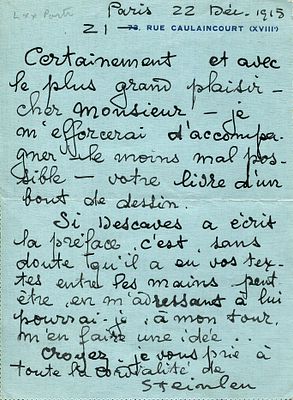 Paris 22 Déc. 1915
21 73, RUE CAULAINCOURT (XVIIIᵉ)
Certainement et avec
le plus grand plaisir —
cher Monsieur — je
m'efforcerai d'accompa-
gner — le moins mal pos-
sible — votre livre d'un
bout de dessin.
Si Descaves a écrit
la préface, c'est, sans
doute qu'il a eu vos tex-
tes entre les mains, peut
être, en m'adressant à lui
pourrai-je, à mon tour,
m'en faire une idée...
Croyez, je vous prie à
toute la cordialité de
Steinlen